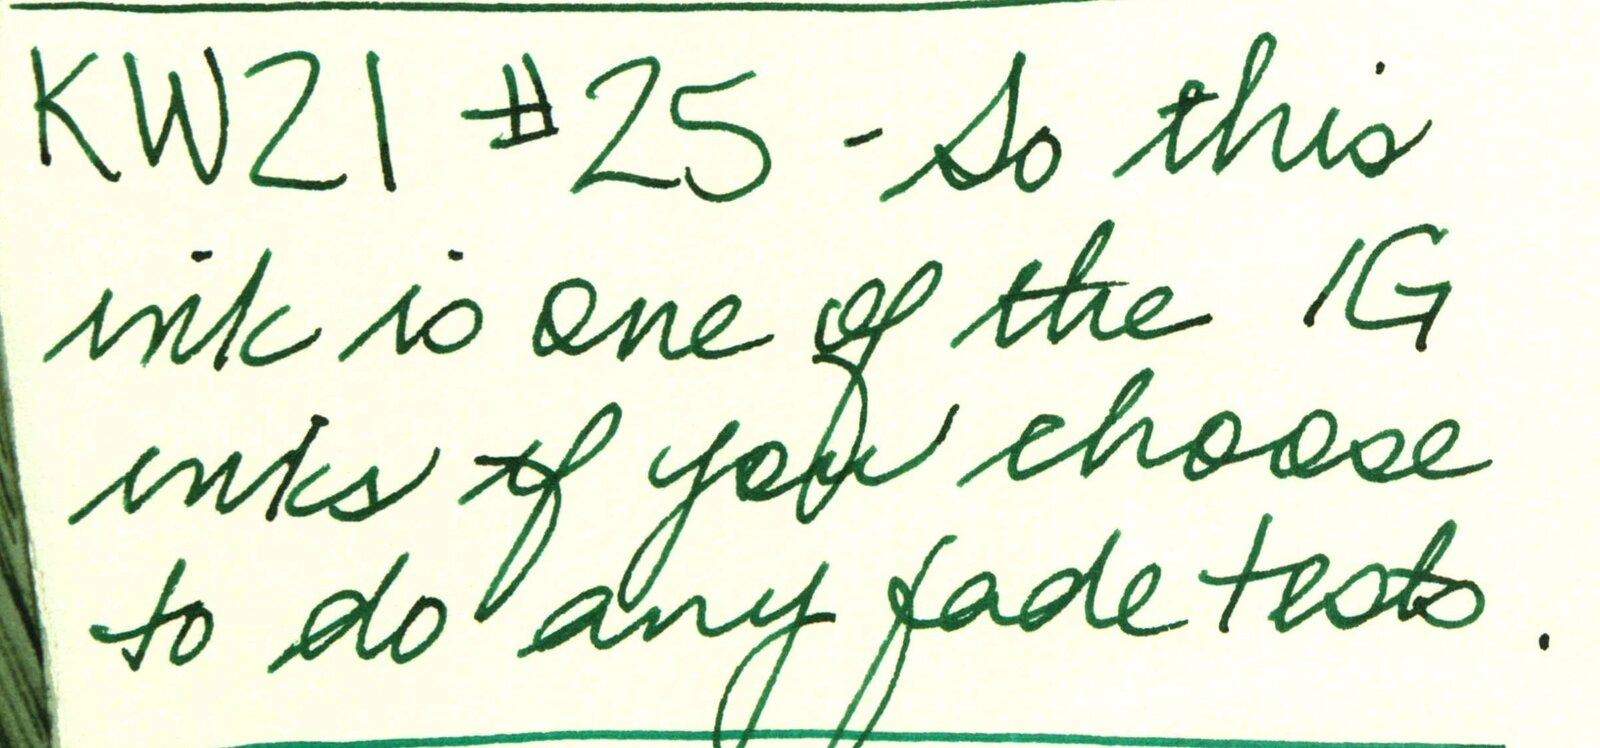 KWZI #25 - So this
ink is one of the IG
inks if you choose
to do any fade tests.